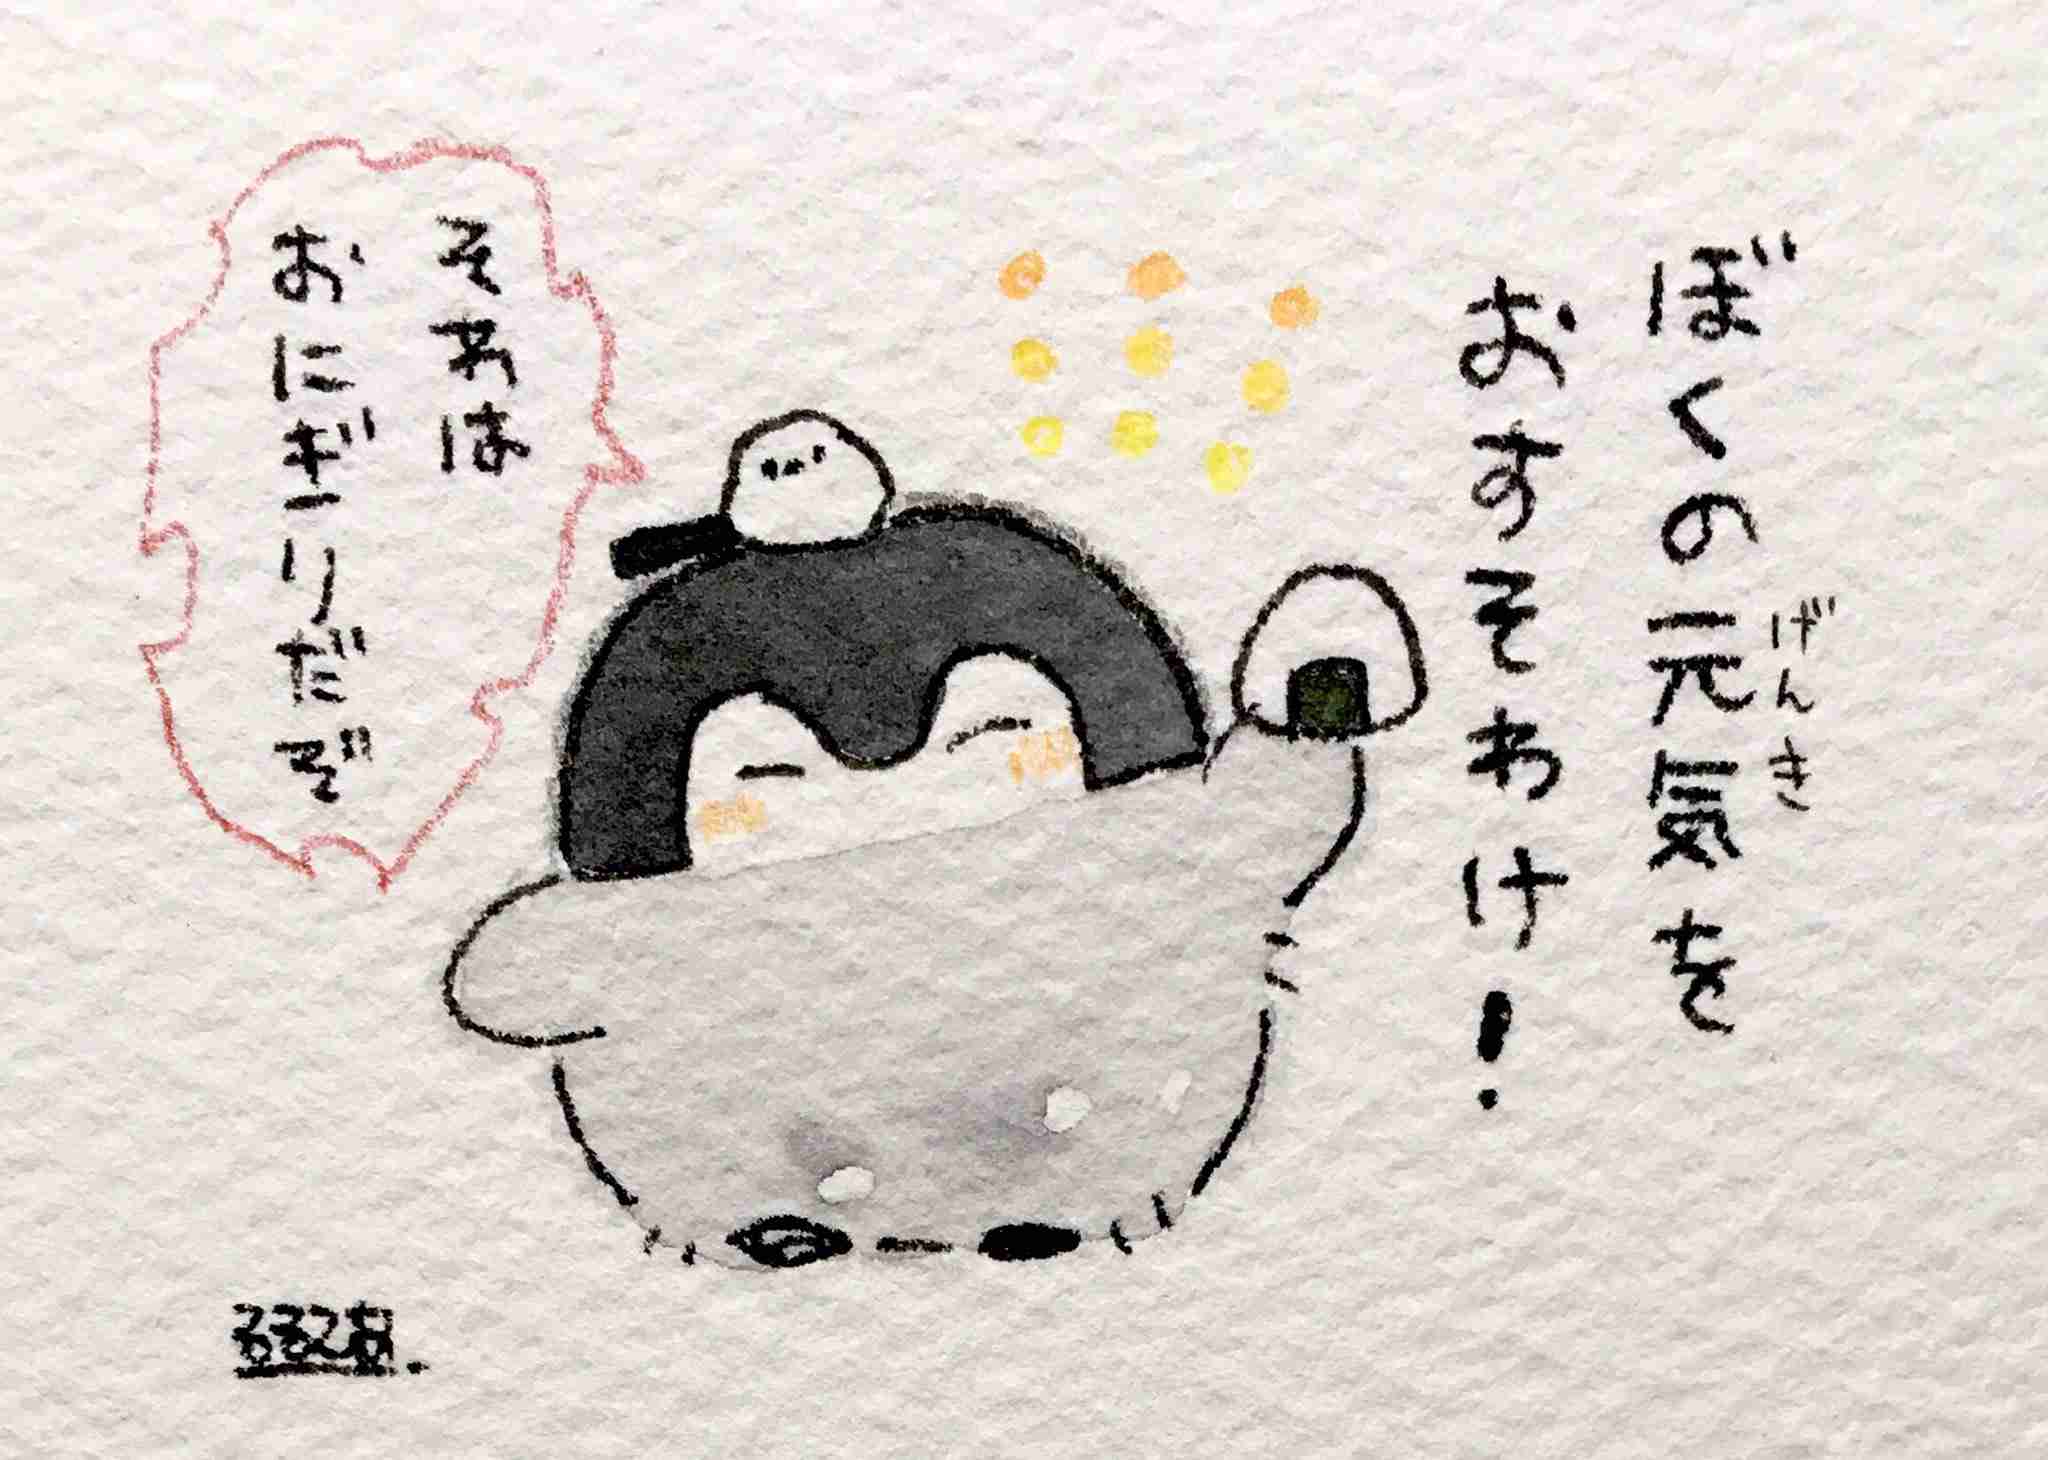 ぼくの元気を
げんき
おすそわけ！
それは
おにぎりだぞ
るるてあ.